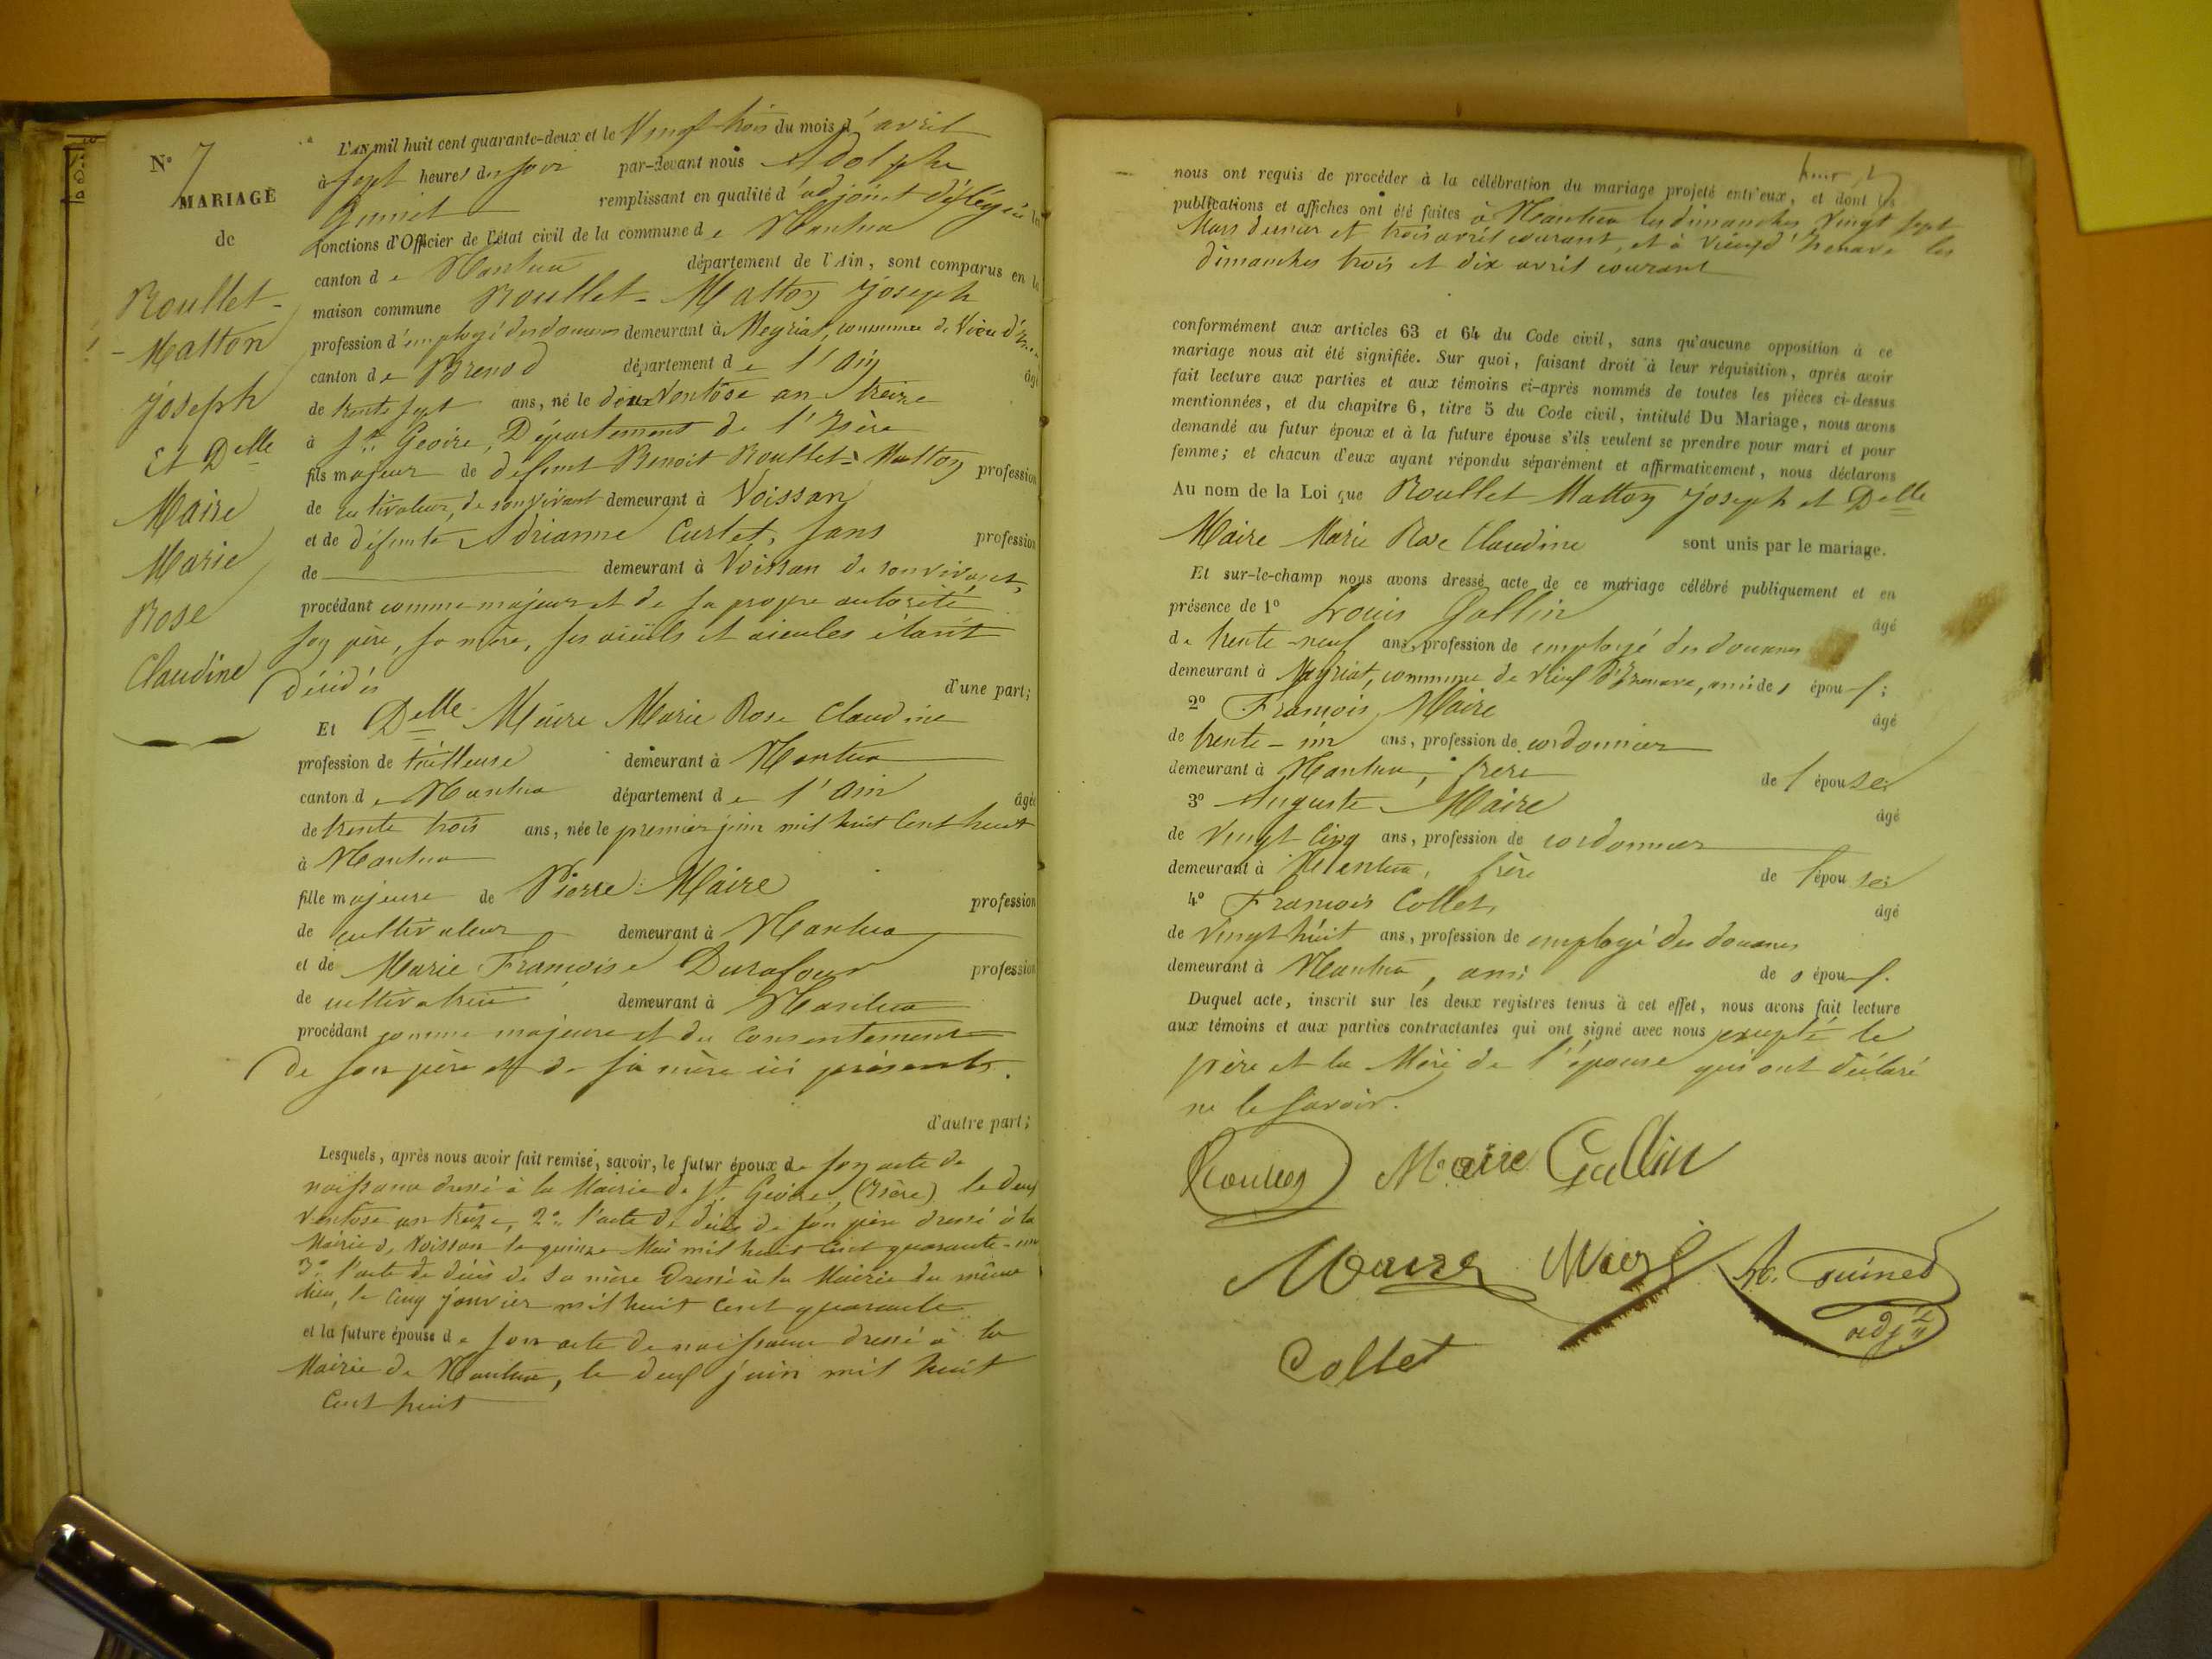 N° 7
MARIAGE
de
Roullet-
-Matton
Joseph
Et Delle
Maire
Marie
Rose
Claudine
L'AN mil huit cent quarante-deux et le Vingt trois du mois d'avril
à sept heures du soir par-devant nous Adolphe
Guinet remplissant en qualité d'adjoint délégué les
fonctions d'Officier de l'état civil de la commune de Nantua
canton de Nantua département de l'Ain, sont comparus en la
maison commune Roullet-Matton Joseph
profession d'employé des douanes demeurant à Meyriat, commune de Vieu d'Iz
canton de Brenod département de l'Ain âgé
de trente sept ans, né le deux Ventôse an treize
à St Geoire, Département de l'Isère
fils majeur de défunt Benoit Roullet-Matton profession
de cultivateur, de son vivant demeurant à Voissan
et de défunte Adrianne Curtet, sans profession
de demeurant à Voissan de son vivant,
procédant comme majeur et de sa propre autorité
son père, sa mère, ses aïeuls et aïeules étant
décédés d'une part;
Et Delle Maire Marie Rose Claudine
profession de tailleuse demeurant à Nantua
canton de Nantua département de l'Ain âgée
de trente trois ans, née le premier juin mil huit Cent huit
à Nantua
fille majeure de Pierre Maire profession
de cultivateur demeurant à Nantua
et de Marie Françoise Durafour profession
de cultivatrice demeurant à Nantua
procédant comme majeure et du Consentement
de son père et de sa mère ici présents.
d'autre part;
Lesquels, après nous avoir fait remise, savoir, le futur époux de son acte de
naissance dressé à la Mairie de St Geoire, (Isère) le deux
Ventôse an treize, 2° l'acte de décès de son père dressé à la
Mairie de Voissan le quinze Mai mil huit Cent quarante-un
3° l'acte de décès de sa mère dressé à la Mairie du même
lieu, le Cinq janvier mil huit Cent quarante
et la future épouse de son acte de naissance dressé à la
Mairie de Nantua, le deux juin mil huit
Cent huit
nous ont requis de procéder à la célébration du mariage projeté entr'eux, et dont les
publications et affiches ont été faites à Nantua les dimanches Vingt sept
Mars dernier et trois avril courant, et à Vieux d'Izenave les
dimanches trois et dix avril courant
conformément aux articles 63 et 64 du Code civil, sans qu'aucune opposition à ce
mariage nous ait été signifiée. Sur quoi, faisant droit à leur réquisition, après avoir
fait lecture aux parties et aux témoins ci-après nommés de toutes les pièces ci-dessus
mentionnées, et du chapitre 6, titre 5 du Code civil, intitulé Du Mariage, nous avons
demandé au futur époux et à la future épouse s'ils veulent se prendre pour mari et pour
femme; et chacun d'eux ayant répondu séparément et affirmativement, nous déclarons
Au nom de la Loi que Roullet Matton Joseph et Delle
Maire Marie Rose Claudine sont unis par le mariage.
Et sur-le-champ nous avons dressé acte de ce mariage célébré publiquement et en
présence de 1° Louis Gallin âgé
de trente-neuf ans, profession de employé des douanes
demeurant à Meyriat, commune de Vieux d'Izenave, ami de l époux;
2° François Maire âgé
de trente-un ans, profession de cordonnier
demeurant à Nantua, frère de l'épouse;
3° Auguste Maire âgé
de Vingt Cinq ans, profession de cordonnier
demeurant à Nantua, frère de l'épouse;
4° François Collet, âgé
de Vingt huit ans, profession de employé des douanes
demeurant à Nantua, ami de l époux.
Duquel acte, inscrit sur les deux registres tenus à cet effet, nous avons fait lecture
aux témoins et aux parties contractantes qui ont signé avec nous excepté le
père et la Mère de l'épouse qui ont déclaré
ne le savoir.
Maire Gallin
Maire Maire Ad. Guinet
adjt
Collet